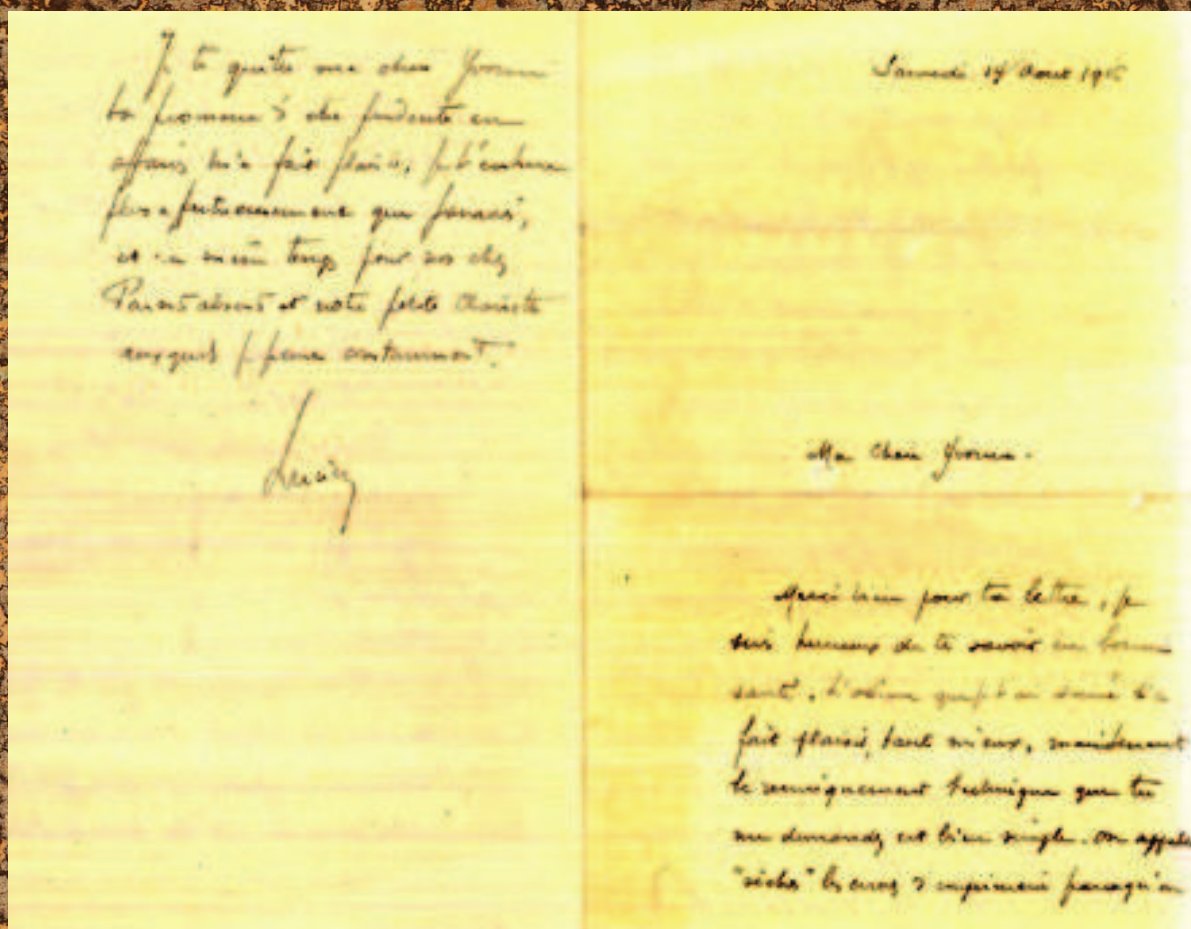 Je te quitte ma chère Yvonne
ta promesse d'être prudente en
affaires m'a fait plaisir, je t'embrasse
plus affectueusement que jamais,
et en même temps pour nos chers
Parents et notre petite
auxquels je pense constamment.
Lucien
Samedi 14 Aout 1915
Ma Chère Yvonne -
Merci bien pour ta lettre, je
suis heureux de te savoir en bonne
santé. que je t'ai donné t'a
fait plaisir, tant mieux, maintenant
le renseignement technique que tu
me demandes est bien simple. on appelle
"sèches" les encres d'imprimerie parcequ'on